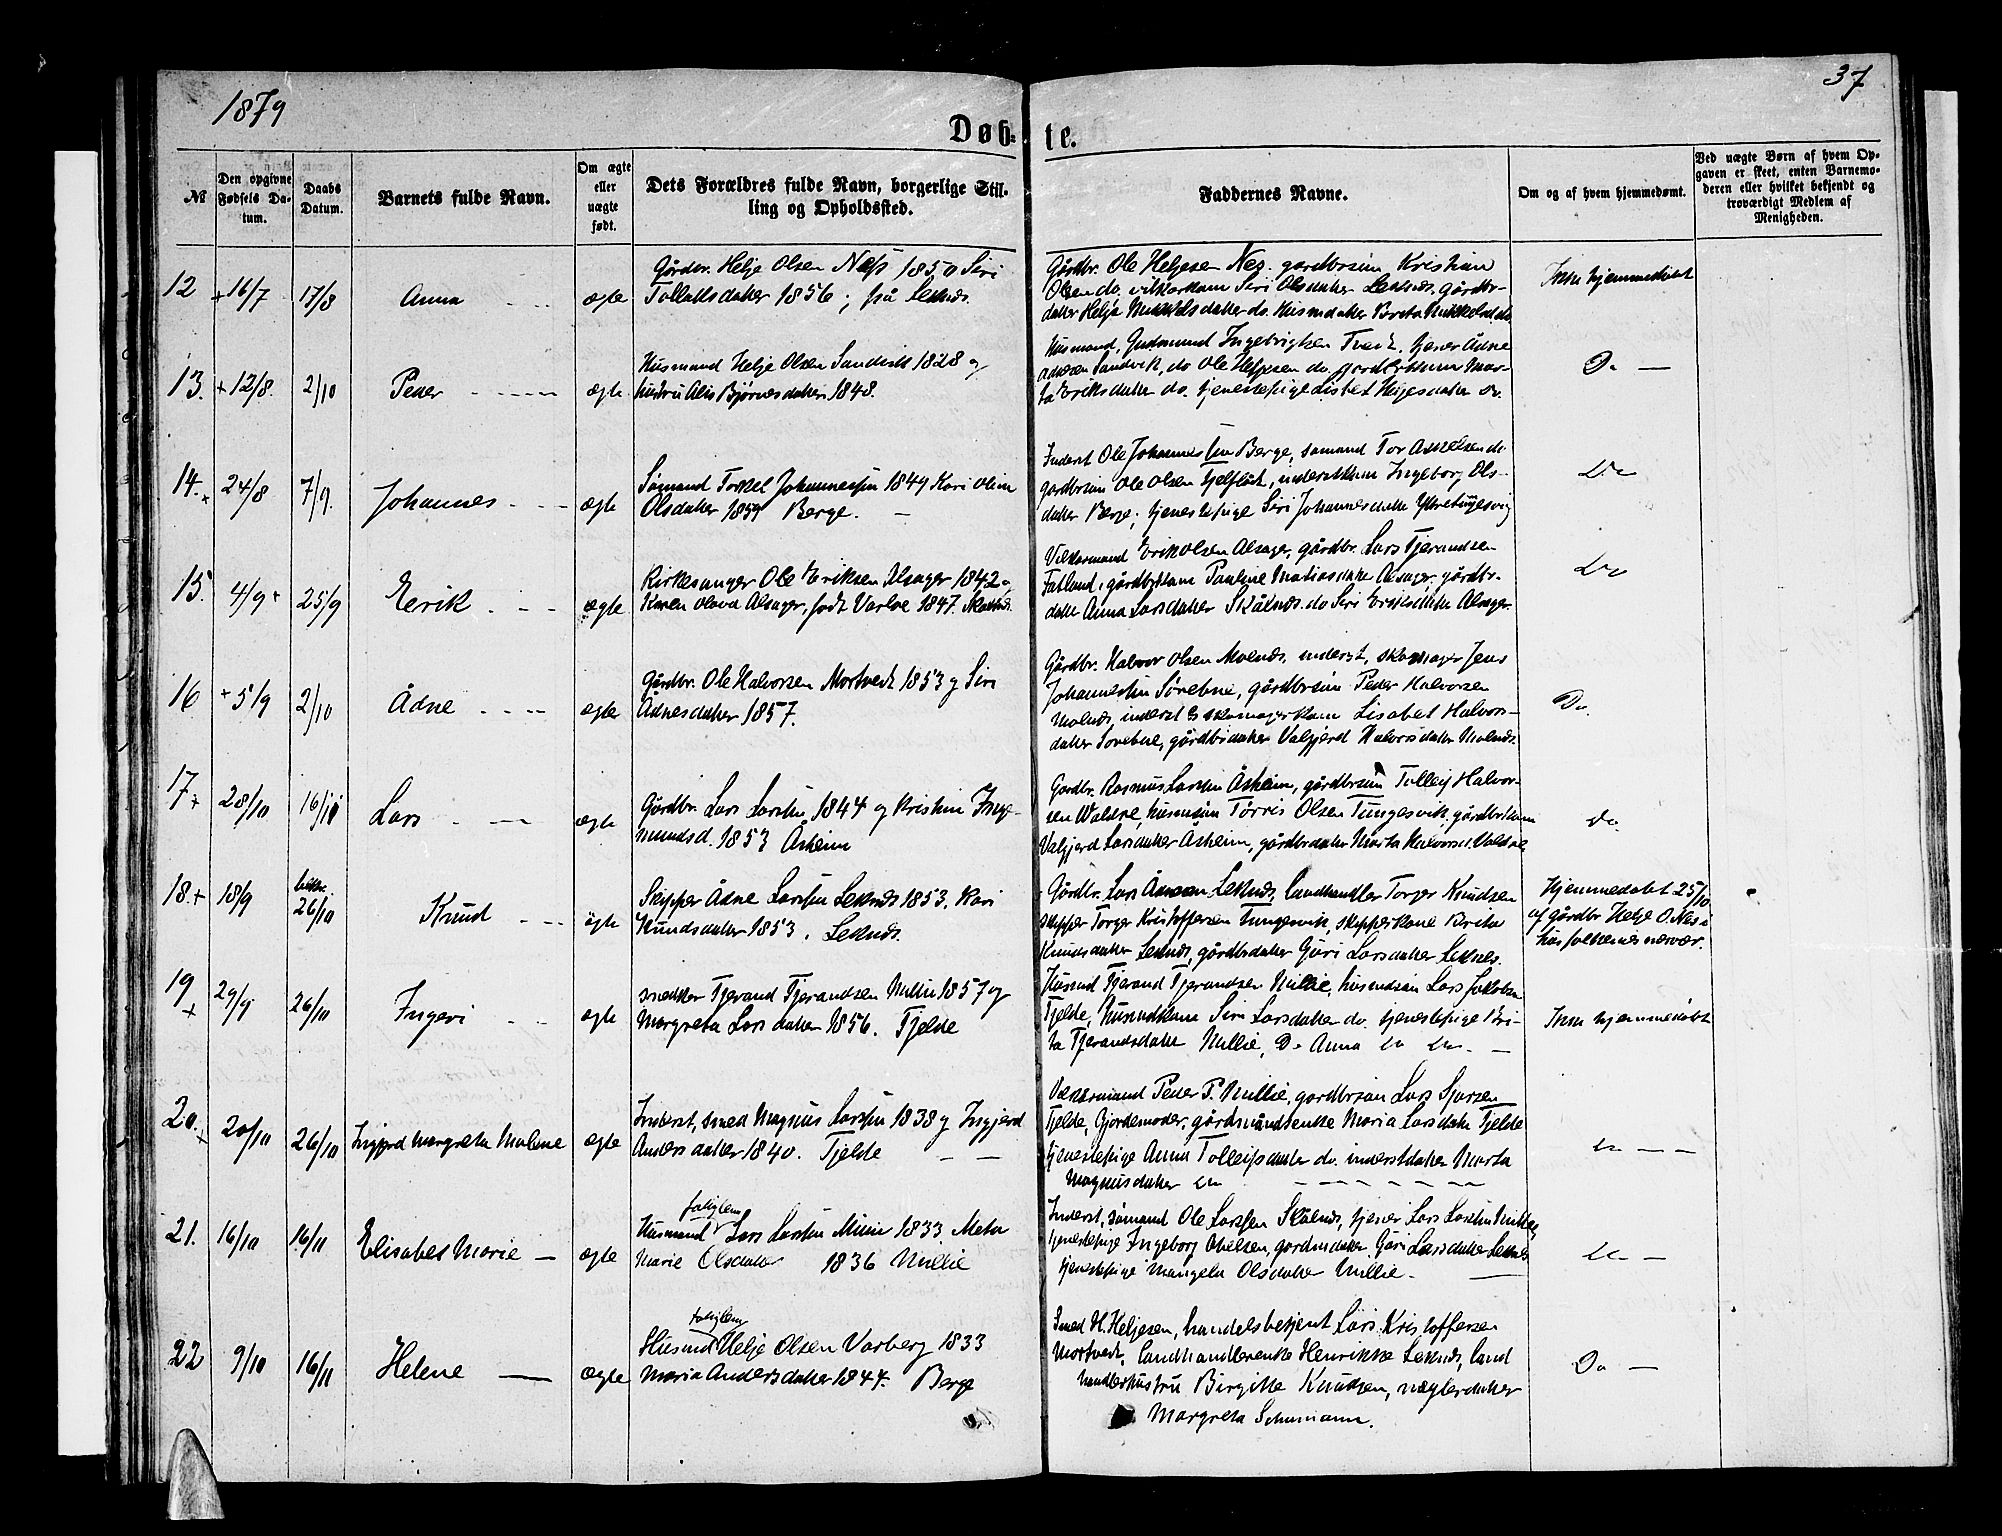 1879
37
Døb-
te.
№
Den opgivne Fødsels Datum.
Daabs Datum.
Barnets fulde Navn.
Om ægte eller uægte født.
Dets Forældres fulde Navn, borgerlige Stilling og Opholdssted.
Faddernes Navne.
Om og af hvem hjemmedømt.
Ved uægte Børn af hvem Opgaven er skeet, enten Barnemoderen eller hvilket bekjendt og troværdigt Medlem af Menigheden.
12 + 16/7 17/8 Anna ægte
Gårdbr. Helje Olsen Næss 1850 Siri
datter 1856; frå Leknds.
Gårdbr. Ole Heljesen Nes. gardbrsøn Kristian
Olsen do, vilkårskam Siri Olsdatter Leknds. gårdbr-
datter Helja datter do. Husmdatter Brita
Ikke hjemmedøbt
13. + 12/8. 2/10 Peder ægte
Husmand Helje Olsen Sandvik 1828 og
hustru Alis Bjørnesdatter 1848.
Husmand, Gudmund Ingebrigtsen Tveit, tjener Ådne
Sandvik, do Ole Heljesen do. Mar-
ta Eriksdatter do. tjenestepige Lisbet Heljesdatter do.
Do —
14. + 24/8 7/9. Johannes ægte
Sømand Torkel Johannessen 1849 Kari Olina
Olsdatter 1859 Berge. —
Inderst Ole Johannessen Berge, sømand Tor do.
gardbrsøn Ole Olsen, inderstkam Ingeborg Ols-
datter Berge; tjenestepige Siri Johannesdatter
Do
15. 4/9 + 25/9 Eerik ægte
Kirkesanger Ole Eriksen Alsager 1842 og
Karen Olava Alsager, født Varloe 1847.
Vilkårmand Erik Olsen Alsager, gårdbr. Lars Tjerandsen
Fatland, gårdbrkam Pauline Alsager, gårdbr-
datter Anna Larsdatter Skålnds. do Siri Eriksdatter Alsager.
Do
16. + 5/9 2/10 Ådne ægte
Gårdbr. Ole Halvorsen Mortvedt 1853 og Siri
Ådnesdatter 1857.
Gårdbr. Halvor Olsen Molnds, inderst, skomager Jens
Johannessen Sørebne, gårdbrsøn Peder Halvorsen
Molnds, inderst & skomagerkam Lisabet Halvors-
datter Sørebne, gårdbrdatter Valgjerd Halvorsdatter Molnds.
Do.
17 + 28/10 16/11 Lars ægte
Gårdbr. Lars Larssen 1844 og Kristine Inge-
mundsd. 1853 Åsheim
Gardbr. Rasmus Larssen Åsheim, gårdbrsøn Tolleif Halvor-
sen, husmdsøn Tørris Olsen Tungesvik, gårdbrkam
Valgjerd Larsdatter Åsheim, gårdbrdatter Marta Halvorsd.
Do.
18. + 18/9 26/10 Knud ægte
Skipper Ådne Larssen Leknds 1853. Kari
Knudsdatter 1853. Leknds.
Gårdbr. Lars Leknds, landhandler Torger Knudsen
skipper Torger Kristoffersen Tungesvik, skipperkone Brita
Knudsdatter Leknds, gårdbrdatter Gjøri Larsdatter Leknes.
Hjemmedøbt 25/10
af gårdbr Helje O. Nes i
husfolkenes nærvær.
19 + 29/9 26/10 Ingeri ægte
snedker Tjerand Tjerandsen Millie 1857 og
Margreta Larsdatter 1856. Tjelde
Husmd Tjerand Tjerandsen Millie, husmdsøn Lars Jakobsen
Tjelde, husmdkam Siri Larsdatter do. tjenestepige Bri-
ta Tjerandsdatter Millie, Do Anna do do. —
Ikke hjemmedøbt
20. + 20/10 26/10 Ingjerd Margreta Malene ægte
Inderst, smed Magnus Larssen 1838 og Ingjerd
Andersdatter 1840. Tjelde — —
Peder P. Millie, gardbrsøn Lars
Tjelde, Gjordemoder, gårdmandsenke Maria Larsdatter Tjelde
tjenestepige Anna Tolleifsdatter do. inderstdatter Marta
Magnusdatter do
do — — —
21. 16/10 16/11 Elisabet Marie — ægte
fatiglem
Husmand Lars Larssen Millie 1833 Meta
Marie Olsdatter 1836 Millie
Inderst, sømand Ole Larssen Skålnds, tjener Lars Larssen
tjenestepige Ingeborg, Gjøri Larsdatter Leknes
tjenestepige Mangela Olsdatter Millie. —
do —
22 9/10 16/11 Helene — ægte
fatiglem
Husmd Helje Olsen Varberg 1833
Maria Andersdatter 1844. Berge
Smed H. Heljesen, handelsbetjent Lars Kristoffersen
Mortvedt, landhandlerenke Henrikke Leknds, land
handlerhustru Birgitte Knudsen, datter
Margreta Schumann.
Do —